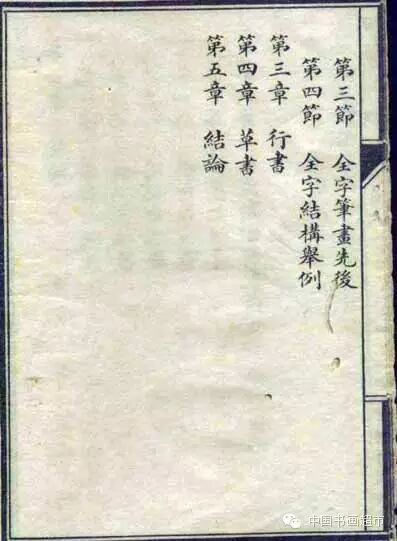 第三節　全字筆畫先後
第四節　全字結構舉例
第三章　行書
第四章　草書
第五章　結論
中国书画超市